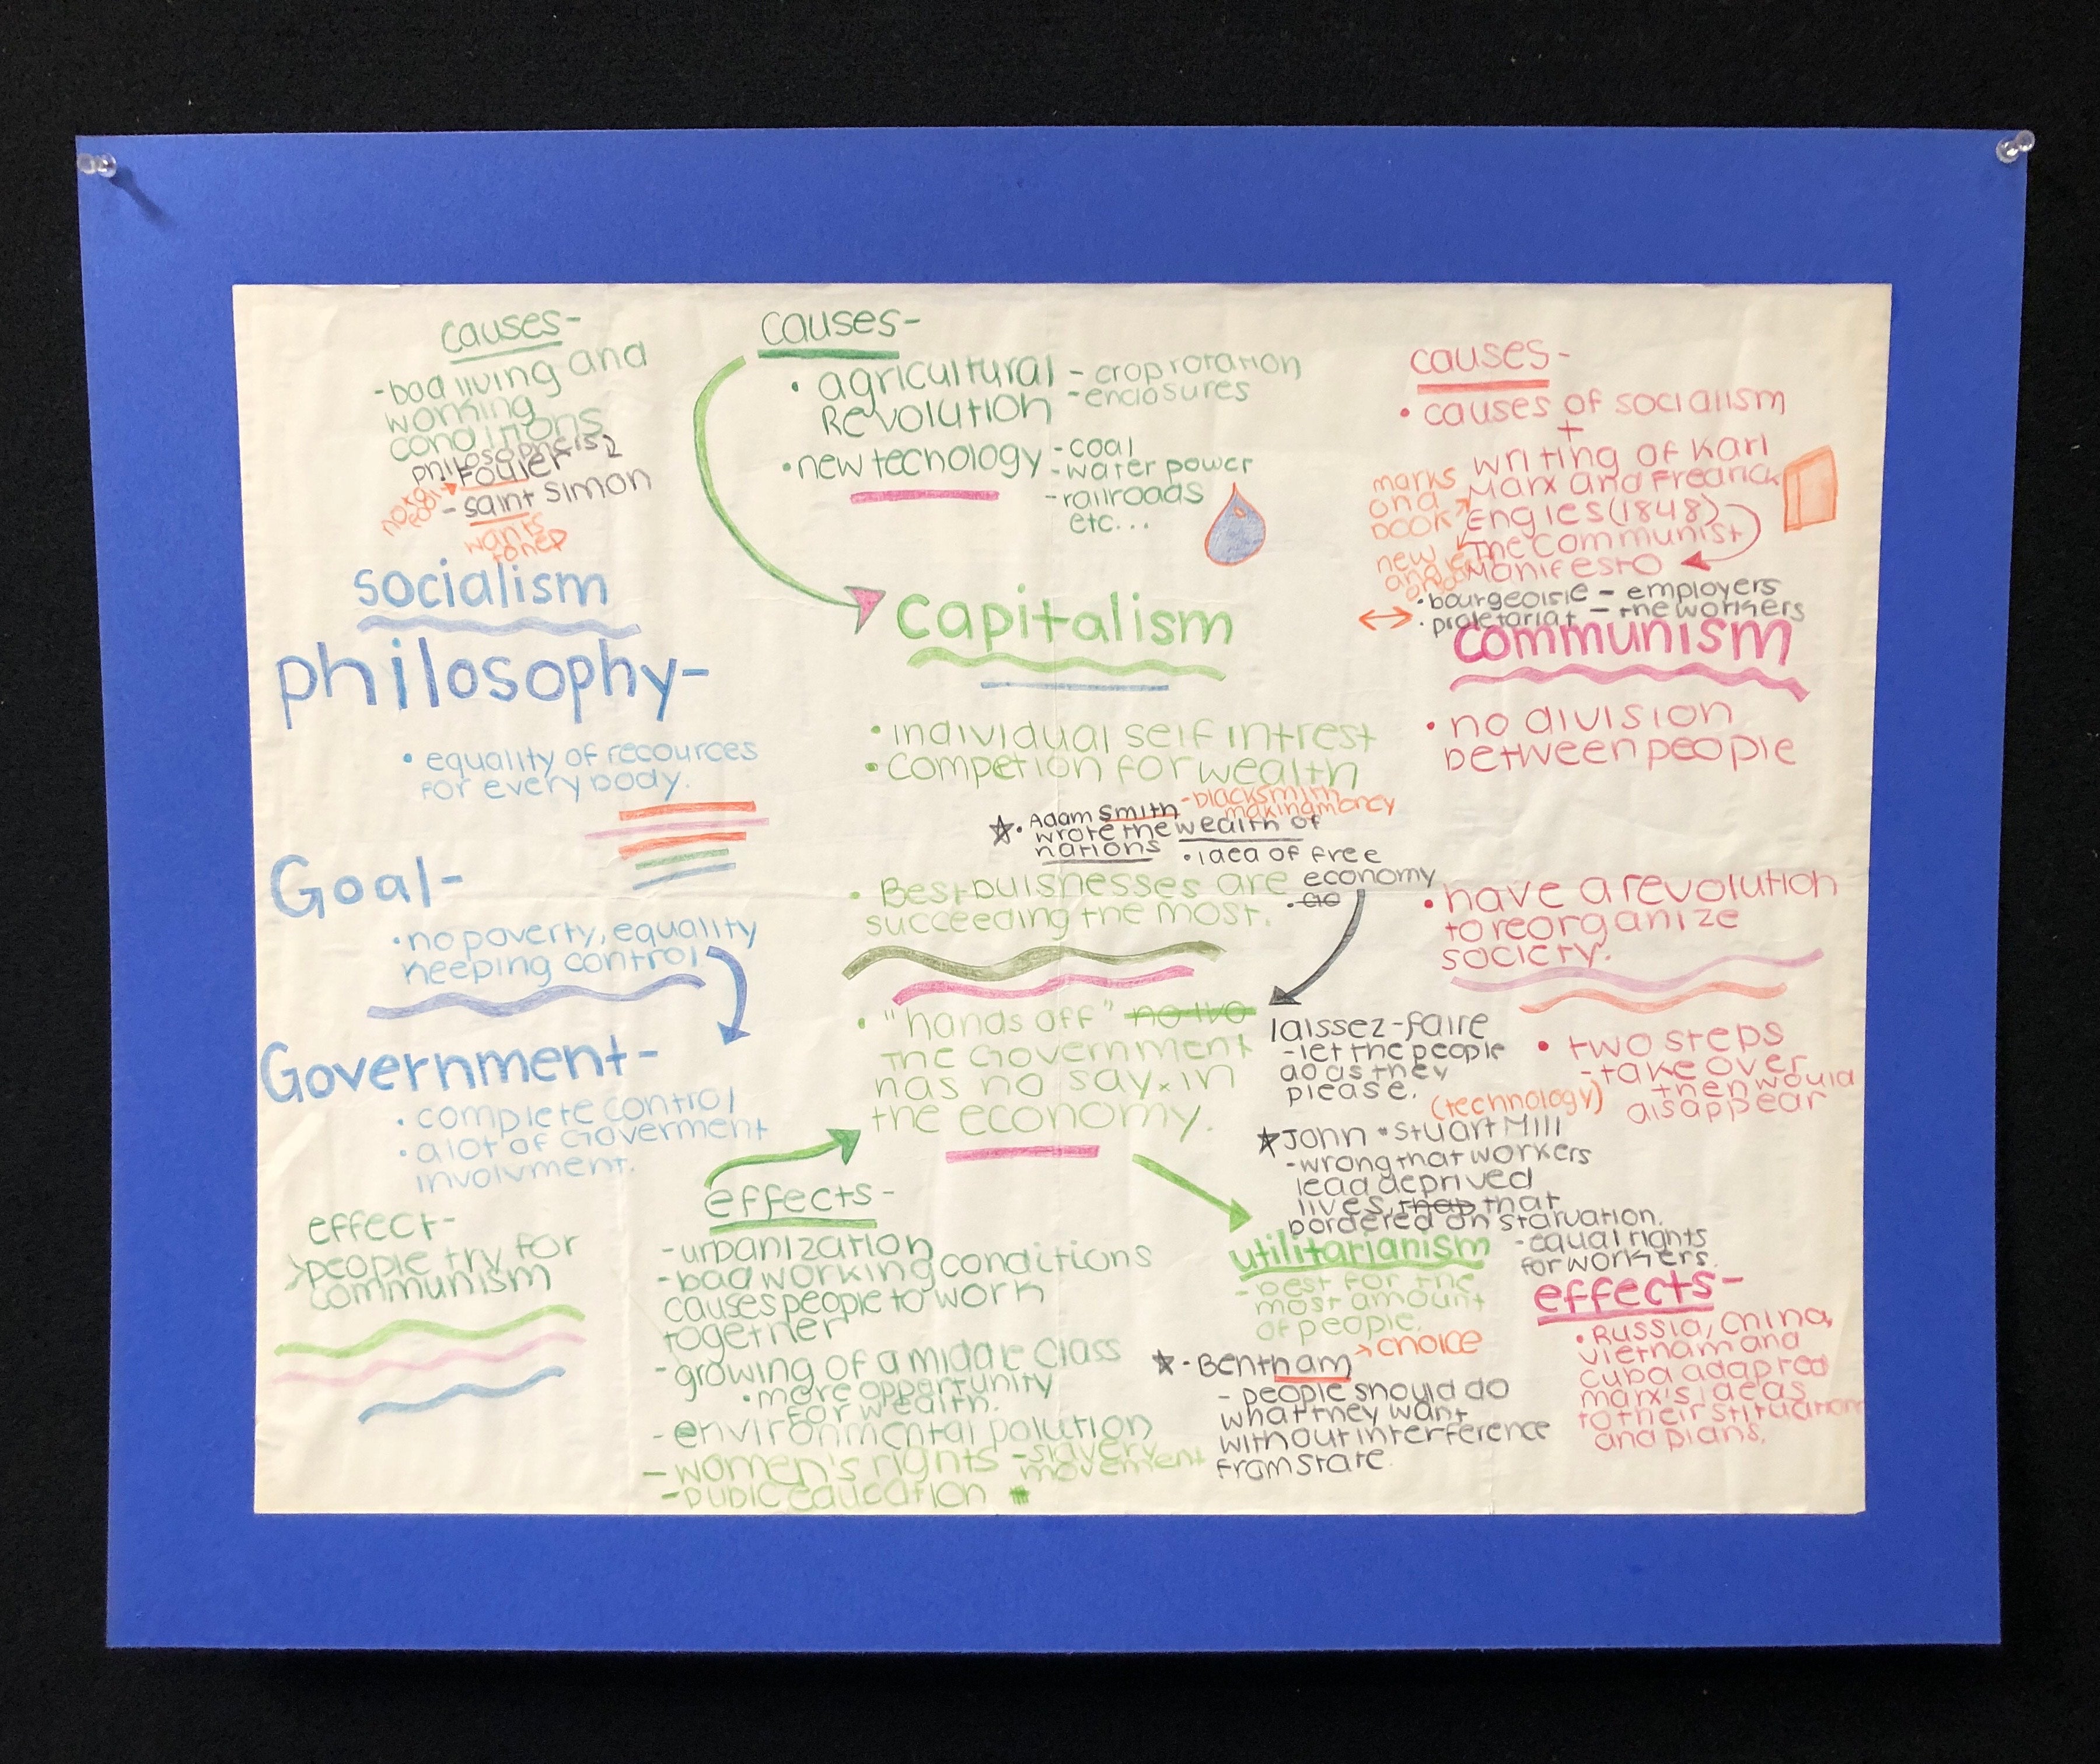 causes-
-bad living and
working
conditions
philosophers
Fouier
- saint simon
wants
socialism
philosophy-
• equality of recources
for every body.
Goal-
• no poverty, equality
keeping control.
Government-
• complete control
• a lot of Goverment
involvment.
effect-
people try for
communism
causes-
• agricultural
Revolution
- crop rotation
- enclosures
• new technology
- coal
- water power
- railroads
etc...
capitalism
• individual self intrest
• competion for wealth
• Adam Smith
wrote the wealth of
nations
- blacksmith
making money
• idea of free
economy
• Best buisnesses are
succeeding the most.
• "hands off"
the Government
has no say in
the economy.
laissez-faire
- let the people
do as they
please.
(technology)
John • Stuart Mill
- wrong that workers
lead deprived
lives, that
bordered on starvation.
- equal rights
for workers.
utilitarianism
- best for the
most amount
of people.
• Bentham
choice
- people should do
what they want
without interference
from state.
effects-
- urbanization
- bad working conditions
causes people to work
together
- growing of a middle class
• more opportunity
for wealth.
- environmental polution
- women's rights
- slavery
movement
- public education
causes-
• causes of socialism
+
writing of Karl
Marx and Fredrick
Engles (1848)
The Communist
Manifesto
marks
on a
book
new
• bourgeoisie - employers
• proletariat - the workers
communism
• no division
between people
• have a revolution
to reorganize
society.
• two steps
- take over
then would
disappear
effects-
• Russia, China,
Vietnam and
Cuba adapted
marx's ideas
to their
and plans.